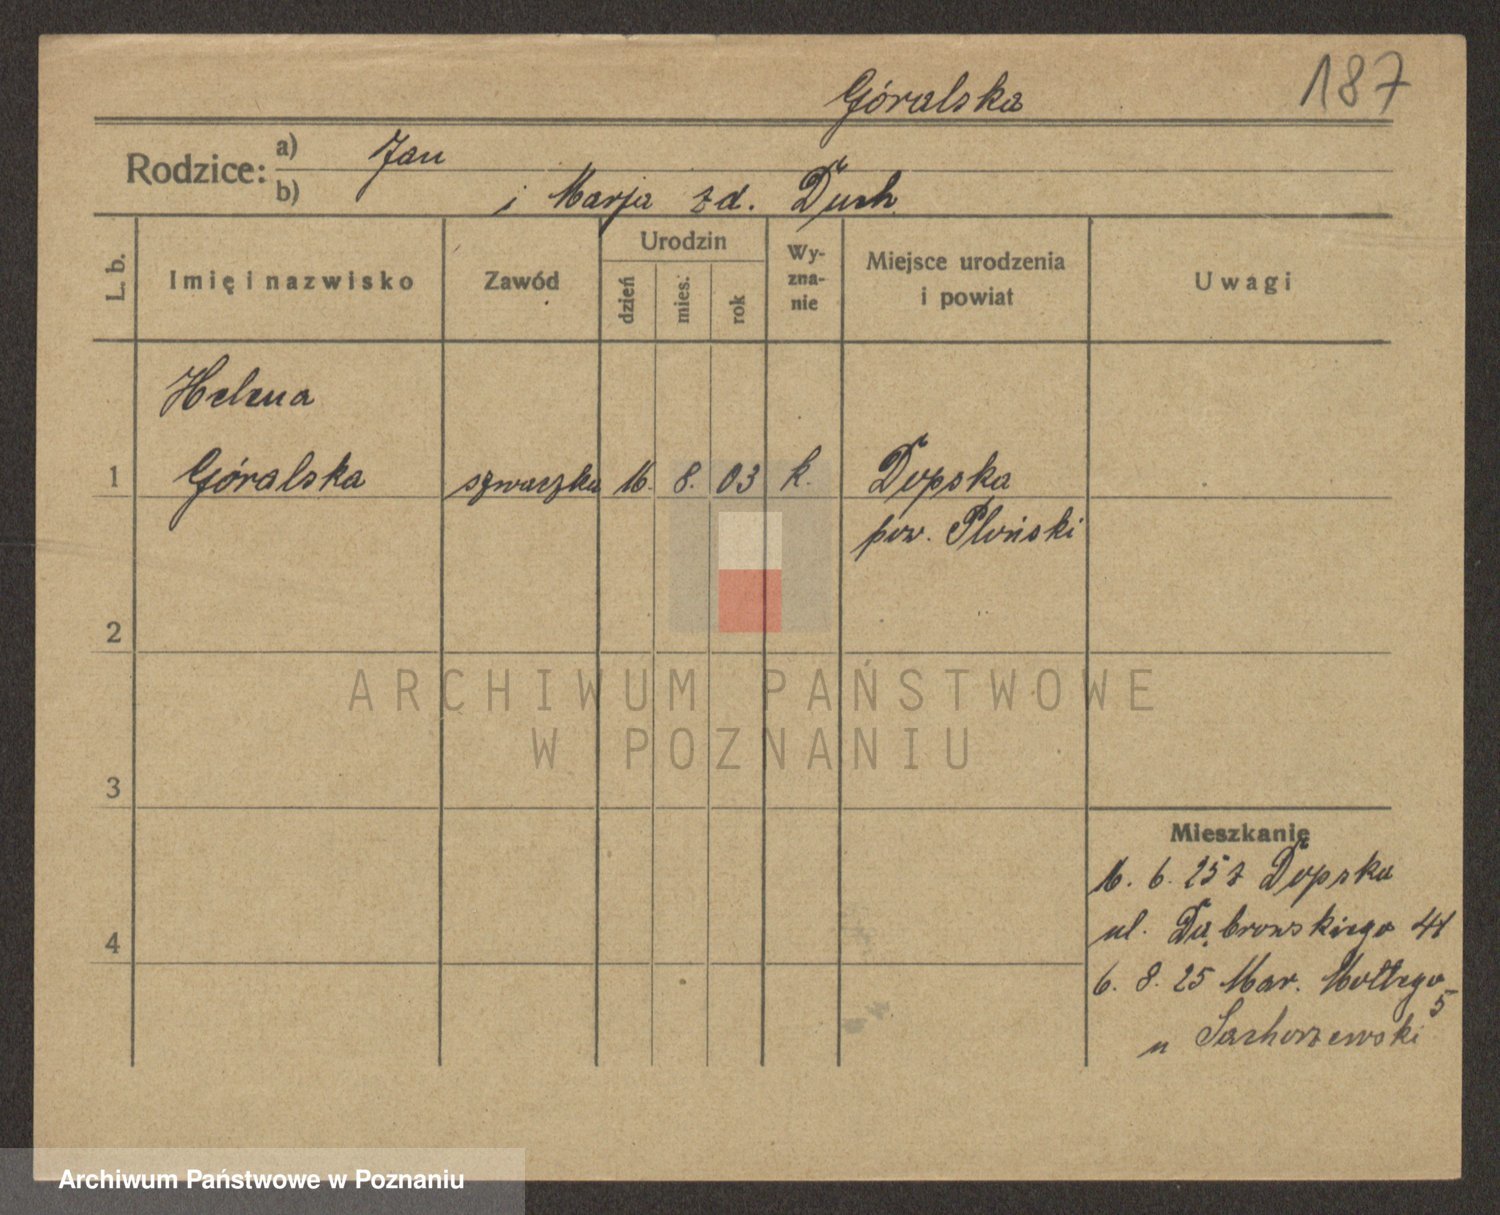 187
Góralska
Rodzice: a) Jan
b) i Marja zd. Duch
L. b.
Imię i nazwisko
Zawód
Urodzin
dzień
mies.
rok
Wy-
zna-
nie
Miejsce urodzenia
i powiat
Uwagi
Helena
1 Góralska szwaczka 16. 8. 03 k. Dopska
pow. Płoński
2
3
4
Mieszkanię
16. 6. 25 z Dopska
ul. Dąbrowskiego 41
6. 8. 25 Mar.
5
u
ARCHIWUM PAŃSTWOWE
W POZNANIU
Archiwum Państwowe w Poznaniu